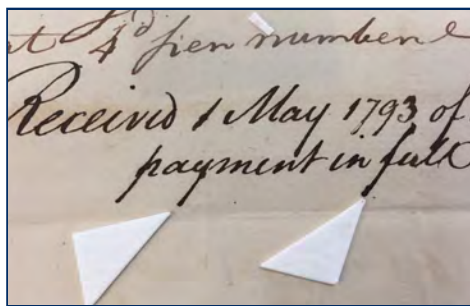 4d sien numben
Received 1 May 1793 of
payment in full